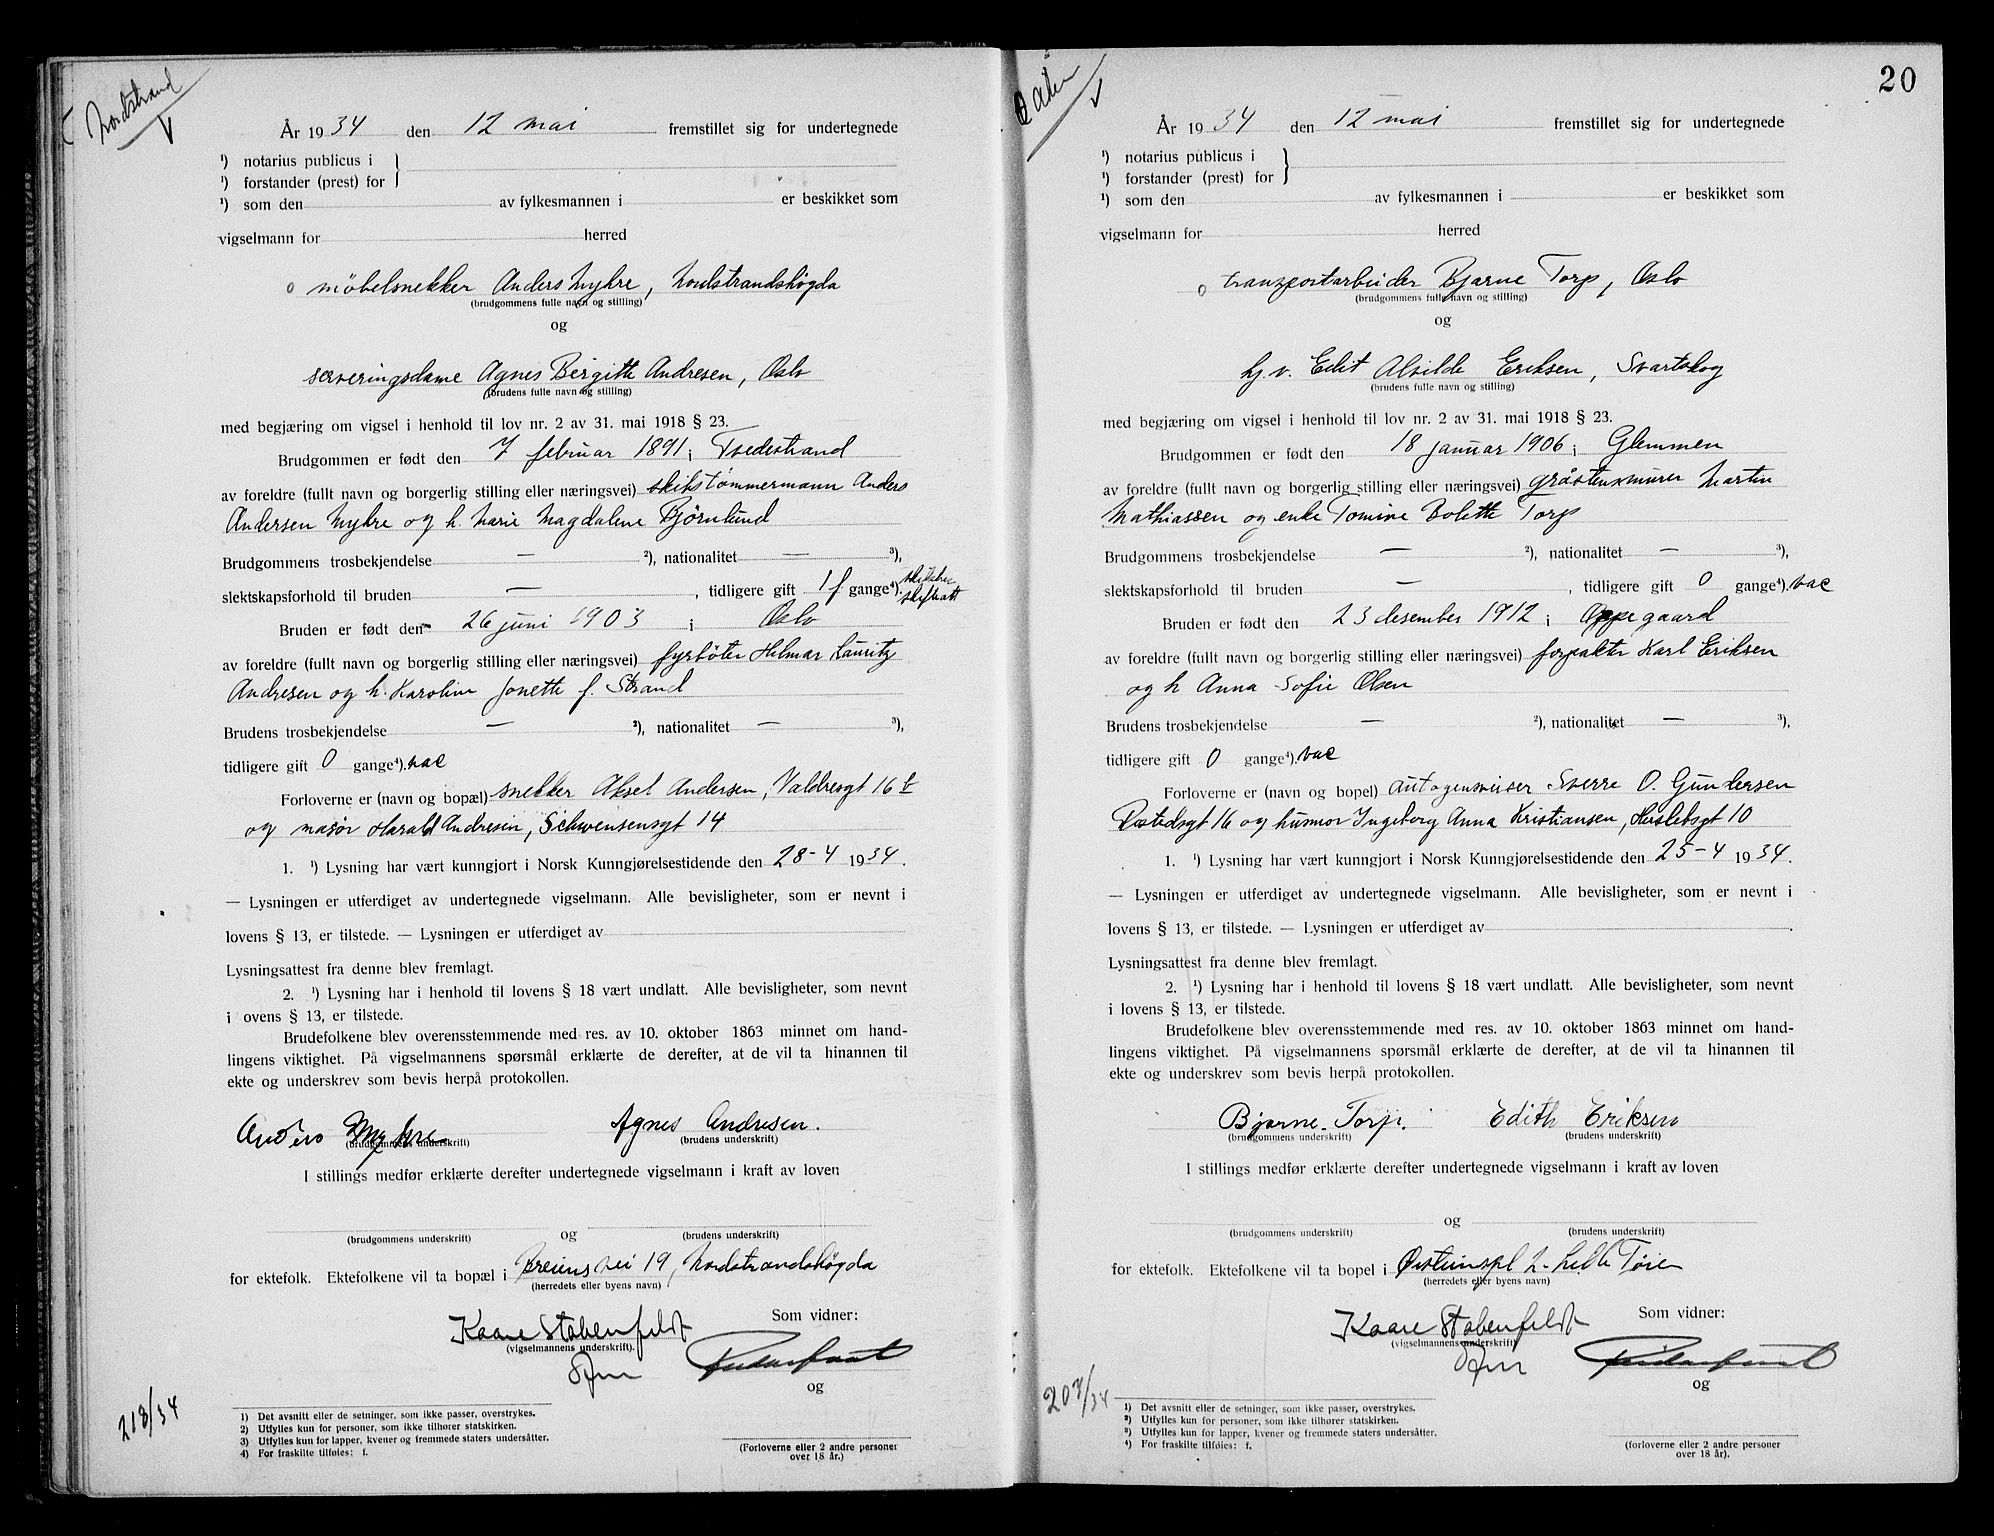 Nordstrand
År 1934 den 12 mai fremstillet sig for undertegnede
¹) notarius publicus i
¹) forstander (prest) for }
¹) som den av fylkesmannen i er beskikket som
vigselmann for herred
møbelsnekker Anders Myhre, Nordstrandshøgda
(brudgommens fulle navn og stilling)
og
serveringsdame Agnes Bergitte Andresen, Oslo
(brudens fulle navn og stilling)
med begjæring om vigsel i henhold til lov nr. 2 av 31. mai 1918 § 23.
Brudgommen er født den 7 februar 1891 i Tvedestrand
av foreldre (fullt navn og borgerlig stilling eller næringsvei) skibstømmermann Anders
Andersen Myhre og h. Marie Magdalene Bjørnlund
Brudgommens trosbekjendelse — ²), nationalitet — ³),
slektskapsforhold til bruden — , tidligere gift 1 f gange⁴). skilsbev
skifteatt
Bruden er født den 26 juni 1903 i Oslo
av foreldre (fullt navn og borgerlig stilling eller næringsvei) fyrbøter Hilmar Lauritz
Andresen og h. Karoline Jonette f. Strand
Brudens trosbekjendelse — ²), nationalitet — ³),
tidligere gift 0 gange⁴). vac
Forloverne er (navn og bopæl) snekker Aksel Andersen, Valdresgt 16
og masør Harald Andresen, Schwensensgt 14
1. ¹) Lysning har vært kunngjort i Norsk Kunngjørelsestidende den 28-4 1934.
— Lysningen er utferdiget av undertegnede vigselmann. Alle bevisligheter, som er nevnt i
lovens § 13, er tilstede. — Lysningen er utferdiget av
Lysningsattest fra denne blev fremlagt.
2. ¹) Lysning har i henhold til lovens § 18 vært undlatt. Alle bevisligheter, som nevnt
i ovens § 13, er tilstede.
Brudefolkene blev overensstemmende med res. av 10. oktober 1863 minnet om hand-
lingens viktighet. På vigselmannens spørsmål erklærte de derefter, at de vil ta hinannen til
ekte og underskrev som bevis herpå protokollen.
Anders Myhre Agnes Andresen.
(brudgommens underskrift) (brudens underskrift)
I stillings medfør erklærte derefter undertegnede vigselmann i kraft av loven
og
(brudgommens underskrift) (brudens underskrift)
for ektefolk. Ektefolkene vil ta bopæl i vei 19, Nordstrandshøgda
(herredets eller byens navn)
Kaare Stabenfeldt Som vidner:
(vigselmannens underskrift).
og
218/34
1) Det avsnitt eller de setninger, som ikke passer, overstrykes.
2) Utfylles kun for personer, som ikke tilhører statskirken.
3) Utfylles kun for lapper, kvener og fremmede staters undersåtter.
4) For fraskilte tilføies: f.
(Forloverne eller 2 andre personer
over 18 år.)
20
År 1934 den 12 mai fremstillet sig for undertegnede
¹) notarius publicus i
¹) forstander (prest) for }
¹) som den av fylkesmannen i er beskikket som
vigselmann for herred
transportarbeider Bjarne Torp, Oslo
(brudgommens fulle navn og stilling)
og
hj.v. Edit Alvilde Eriksen, Svartskog
(brudens fulle navn og stilling)
med begjæring om vigsel i henhold til lov nr. 2 av 31. mai 1918 § 23.
Brudgommen er født den 18 januar 1906 i Glemmen
av foreldre (fullt navn og borgerlig stilling eller næringsvei) gråstensmurer Martin
Mathiassen og enke Tomine Bolette Torp
Brudgommens trosbekjendelse — ²), nationalitet — ³),
slektskapsforhold til bruden — , tidligere gift 0 gange⁴). vac
Bruden er født den 23 desember 1912 i Oppegaard
av foreldre (fullt navn og borgerlig stilling eller næringsvei) forpakter Karl Eriksen
og h Anna Sofie Olsen
Brudens trosbekjendelse — ²), nationalitet — ³),
tidligere gift 0 gange⁴). vac
Forloverne er (navn og bopel) autogensveiser Sverre O. Gundersen
16 og husmor Ingeborg Anna Kristiansen, Herslebsgt 10
1. ¹) Lysning har vært kunngjort i Norsk Kunngjørelsestidende den 25-4 1934.
— Lysningen er utferdiget av undertegnede vigselmann. Alle bevisligheter, som er nevnt i
lovens § 13, er tilstede. — Lysningen er utferdiget av
Lysningsattest fra denne blev fremlagt.
2. ¹) Lysning har i henhold til lovens § 18 vært undlatt. Alle bevisligheter, som nevnt
i lovens § 13, er tilstede.
Brudefolkene blev overensstemmende med res. av 10. oktober 1863 minnet om hand-
lingens viktighet. På vigselmannens spørsmål erklærte de derefter, at de vil ta hinannen til
ekte og underskrev som bevis herpå protokollen.
Bjarne Torp. Edith Eriksen
(brudgommens underskrift) (brudens underskrift)
I stillings medfør erklærte derefter undertegnede vigselmann i kraft av loven
og
(brudgommens underskrift) (brudens underskrift)
for ektefolk. Ektefolkene vil ta bopel i Østeinspl 2. Lille Tøien
(herredets eller byens navn)
Kaare Stabenfeldt Som vidner:
(vigselmannens underskrift)
og
207/34
¹) Det avsnitt eller de setninger, som ikke passer, overstrykes.
²) Utfylles kun for personer, som ikke tilhører statskirken.
³) Utfylles kun for lapper, kvener og fremmede staters undersåtter.
⁴) For fraskilte tilføies: f.
(forloverne eller 2 andre personer
over 18 år).